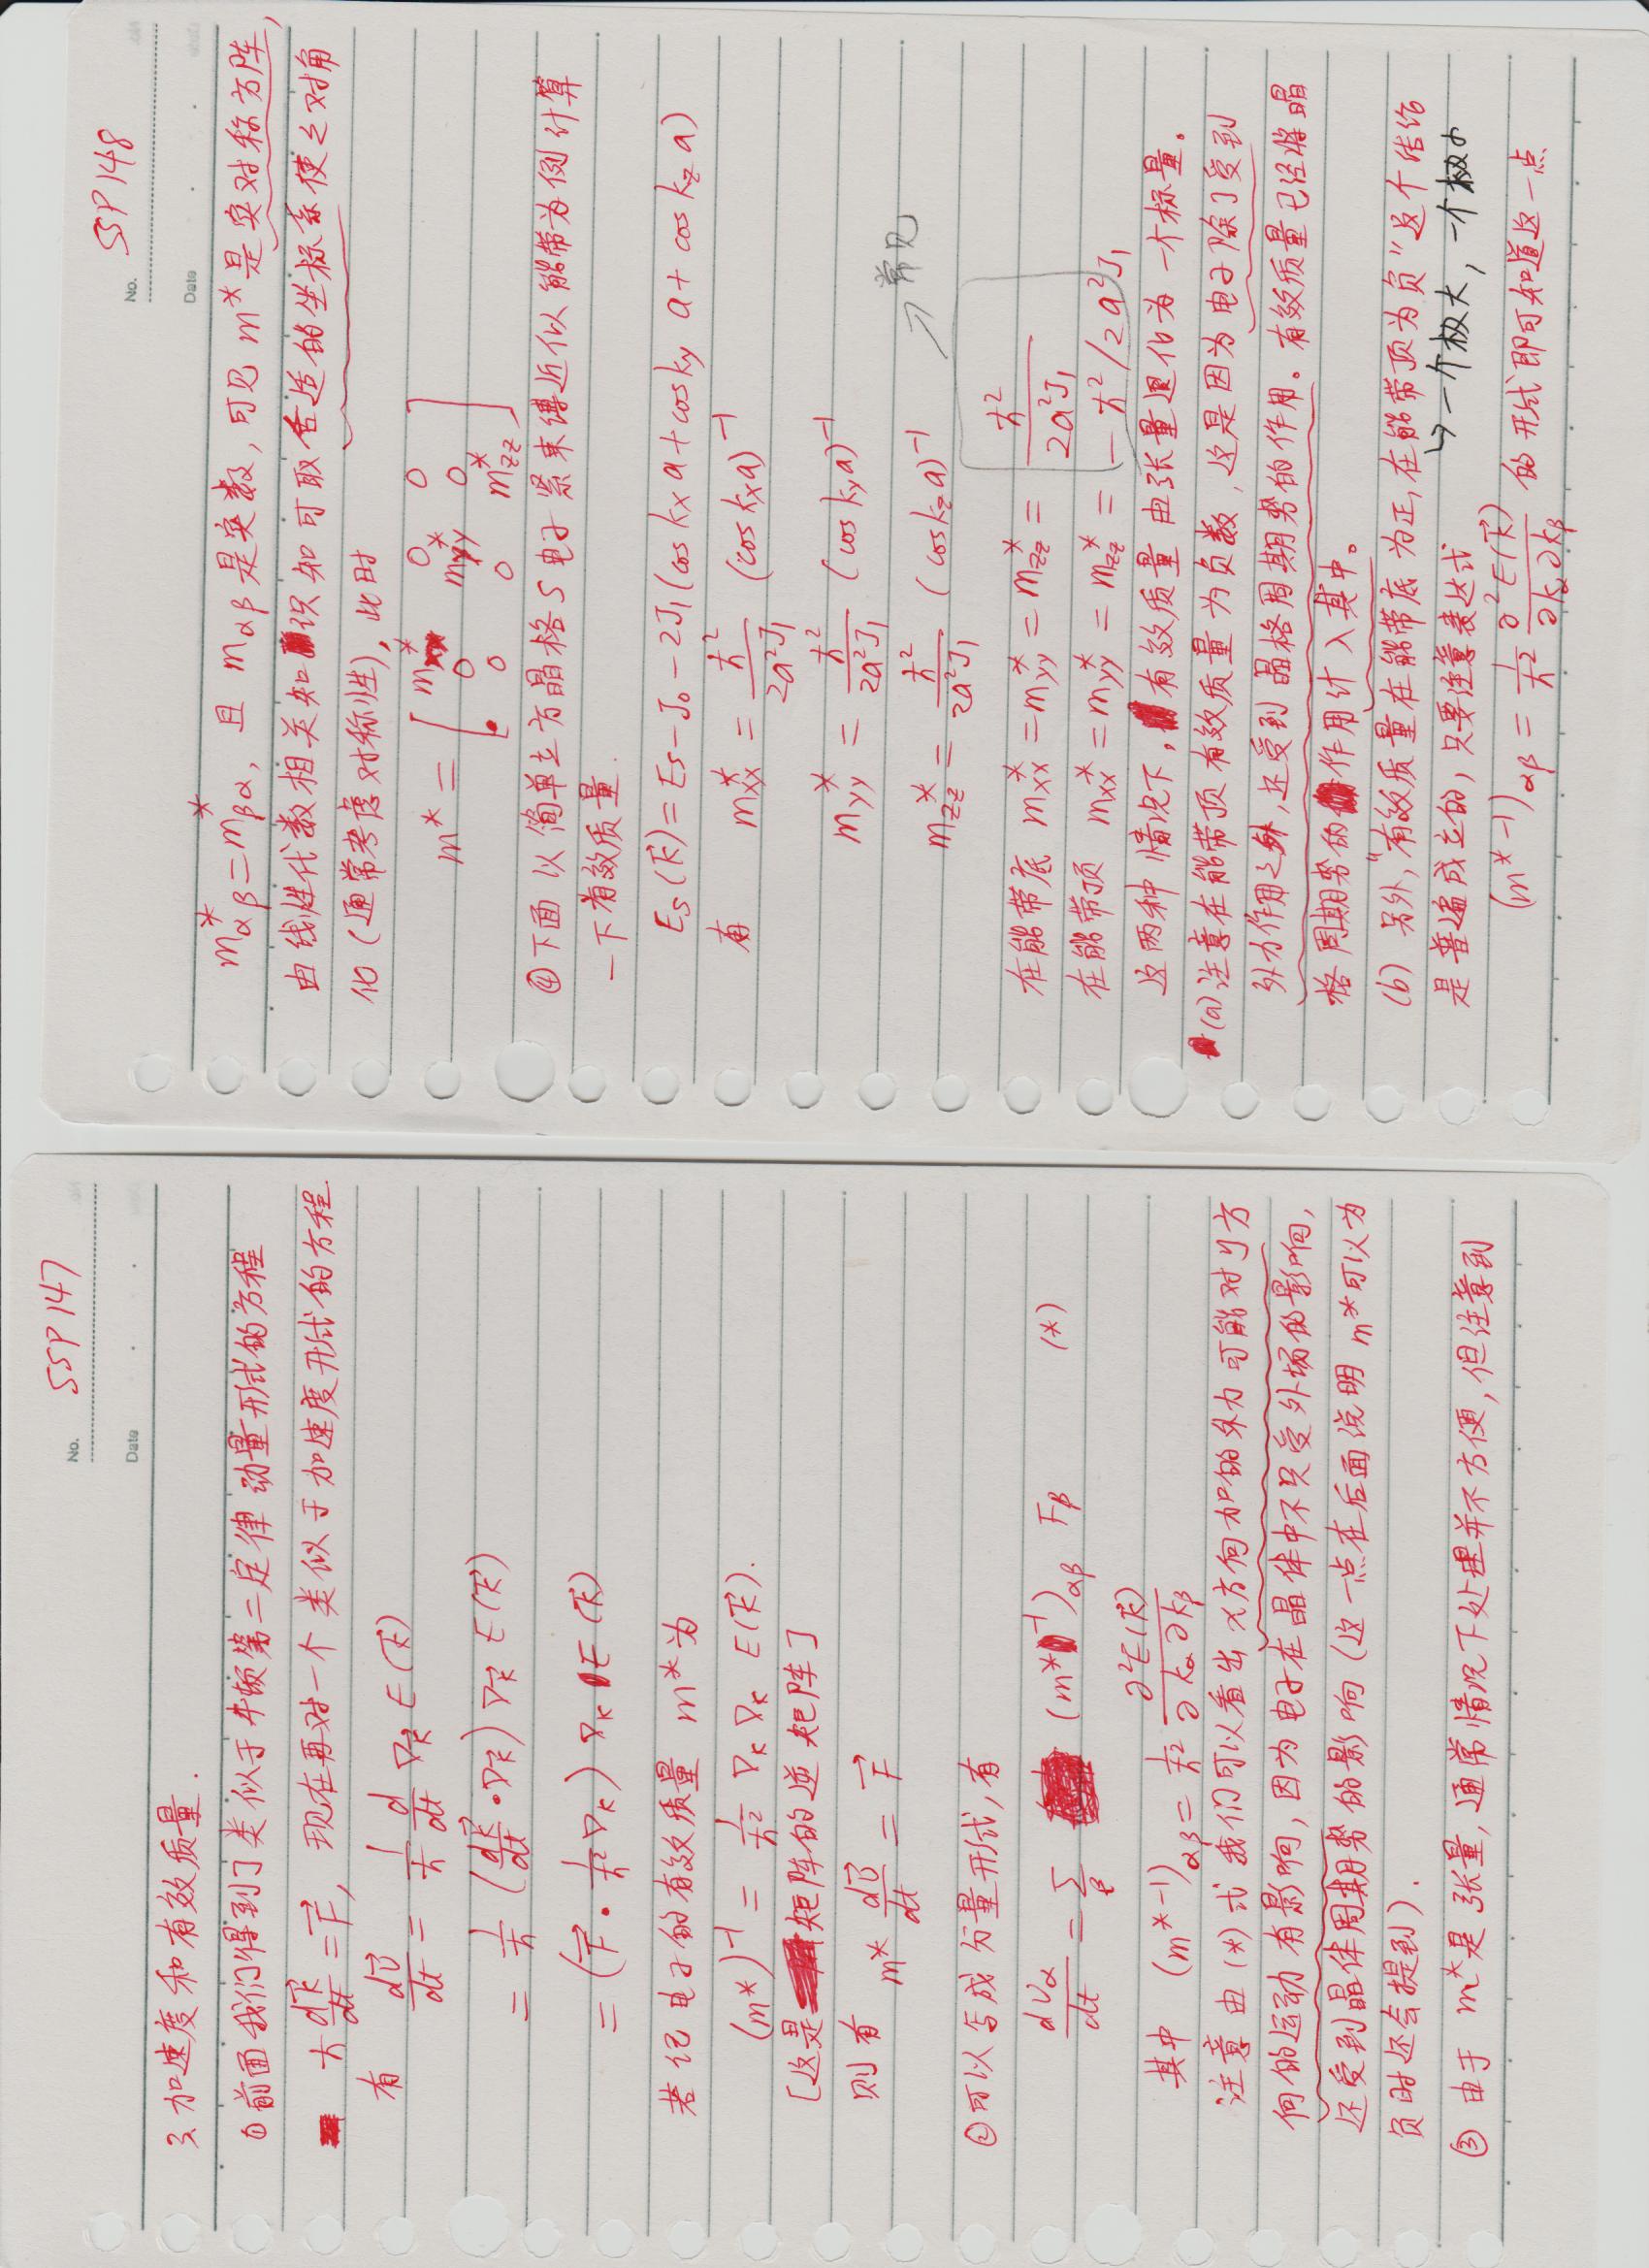 No. SSP 147
Date
3、加速度和有效质量.
①前面我们得到了类似于牛顿第二定律动量形式的方程
ℏ dk⃗/dt = F⃗, 现在再对一个类似于加速度形式的方程
有 dv⃗/dt = 1/ℏ d/dt ∇k⃗ E(k⃗)
= 1/ℏ (dk⃗/dt · ∇k⃗) ∇k⃗ E(k⃗)
= (F⃗ · 1/ℏ² ∇k) ∇k E(k⃗)
若记电子的有效质量 m* 为
(m*)⁻¹ = 1/ℏ² ∇k ∇k E(k⃗).
[这是矩阵的逆矩阵]
则有 m* dv⃗/dt = F⃗
②可以写成分量形式,有
dvα/dt = Σβ (m*⁻¹)αβ Fβ (*)
其中 (m*⁻¹)αβ = 1/ℏ² ∂²E(k⃗)/∂kα∂kβ
注意由(*)式我们可以看出x方向加的外力可能对y方
向的运动有影响,因为电子在晶体中不只受外场的影响,
还受到晶体周期势的影响(这一点在后面说明m*可以为
负时还会提到).
③ 由于 m*是张量,通常情况下处理并不方便,但注意到
No. SSP 148
Date
m*αβ = m*βα, 且 mαβ 是实数,可见 m* 是实对称方阵,
由线性代数相关知识知可取合适的坐标系使之对角
化(通常考虑对称性),此时
m* = [ m*xx 0 0
0 m*yy 0
0 0 m*zz ]
④下面以简单立方晶格S电子紧束缚近似能带为例计算
一下有效质量.
Es(k⃗) = Es - J₀ - 2J₁(cos kx a + cos ky a + cos kz a)
有 m*xx = ℏ²/2a²J₁ (cos kx a)⁻¹
m*yy = ℏ²/2a²J₁ (cos ky a)⁻¹
m*zz = ℏ²/2a²J₁ (cos kz a)⁻¹
常见
在能带底 m*xx = m*yy = m*zz = ℏ²/2a²J₁
在能带顶 m*xx = m*yy = m*zz = -ℏ²/2a²J₁
这两种情况下,有效质量由张量退化为一个标量。
(a)注意在能带顶有效质量为负数,这是因为电子除了受到
外力作用之外,还受到晶格周期势的作用。有效质量已经将晶
格周期势的作用计入其中。
(b) 另外,"有效质量在能带底为正,在能带顶为负"这个结论
是普遍成立的,只要注意表达式
↳一个极大,一个极小
(m*⁻¹)αβ = 1/ℏ² ∂²E(k⃗)/∂kα∂kβ 的形式即可知道这一点